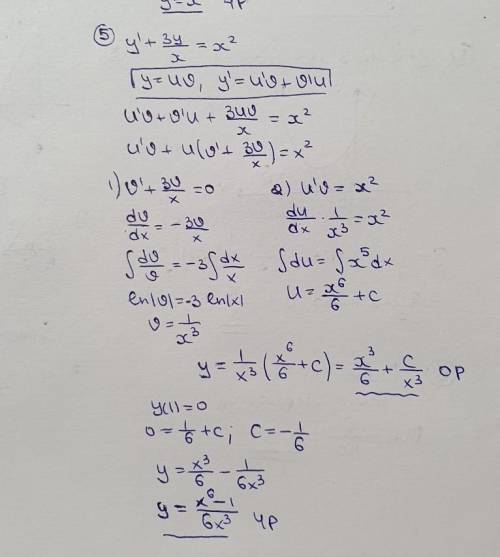 y=x ЧР
⑤ y' + 3y/x = x²
y=uϑ, y'=u'ϑ+ϑ'u
u'ϑ+ϑ'u + 3uϑ/x = x²
u'ϑ + u(ϑ' + 3ϑ/x) = x²
1) ϑ' + 3ϑ/x = 0
dϑ/dx = -3ϑ/x
∫dϑ/ϑ = -3∫dx/x
ln|ϑ| = -3 ln|x|
ϑ = 1/x³
2) u'ϑ = x²
du/dx · 1/x³ = x²
∫du = ∫x⁵dx
u = x⁶/6 + c
y = 1/x³ (x⁶/6 + c) = x³/6 + c/x³ ОР
y(1)=0
0 = 1/6 + c; c = -1/6
y = x³/6 - 1/6x³
y = x⁶-1/6x³ ЧР